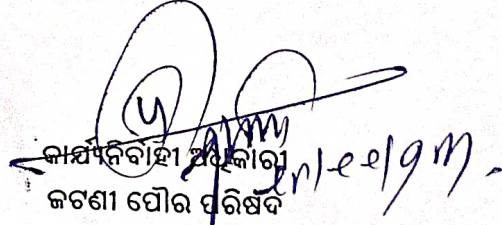 କାର୍ଯ୍ୟନିର୍ବାହୀ ଅଧିକାରୀ
ଜଟଣୀ ପୌର ପରିଷଦ